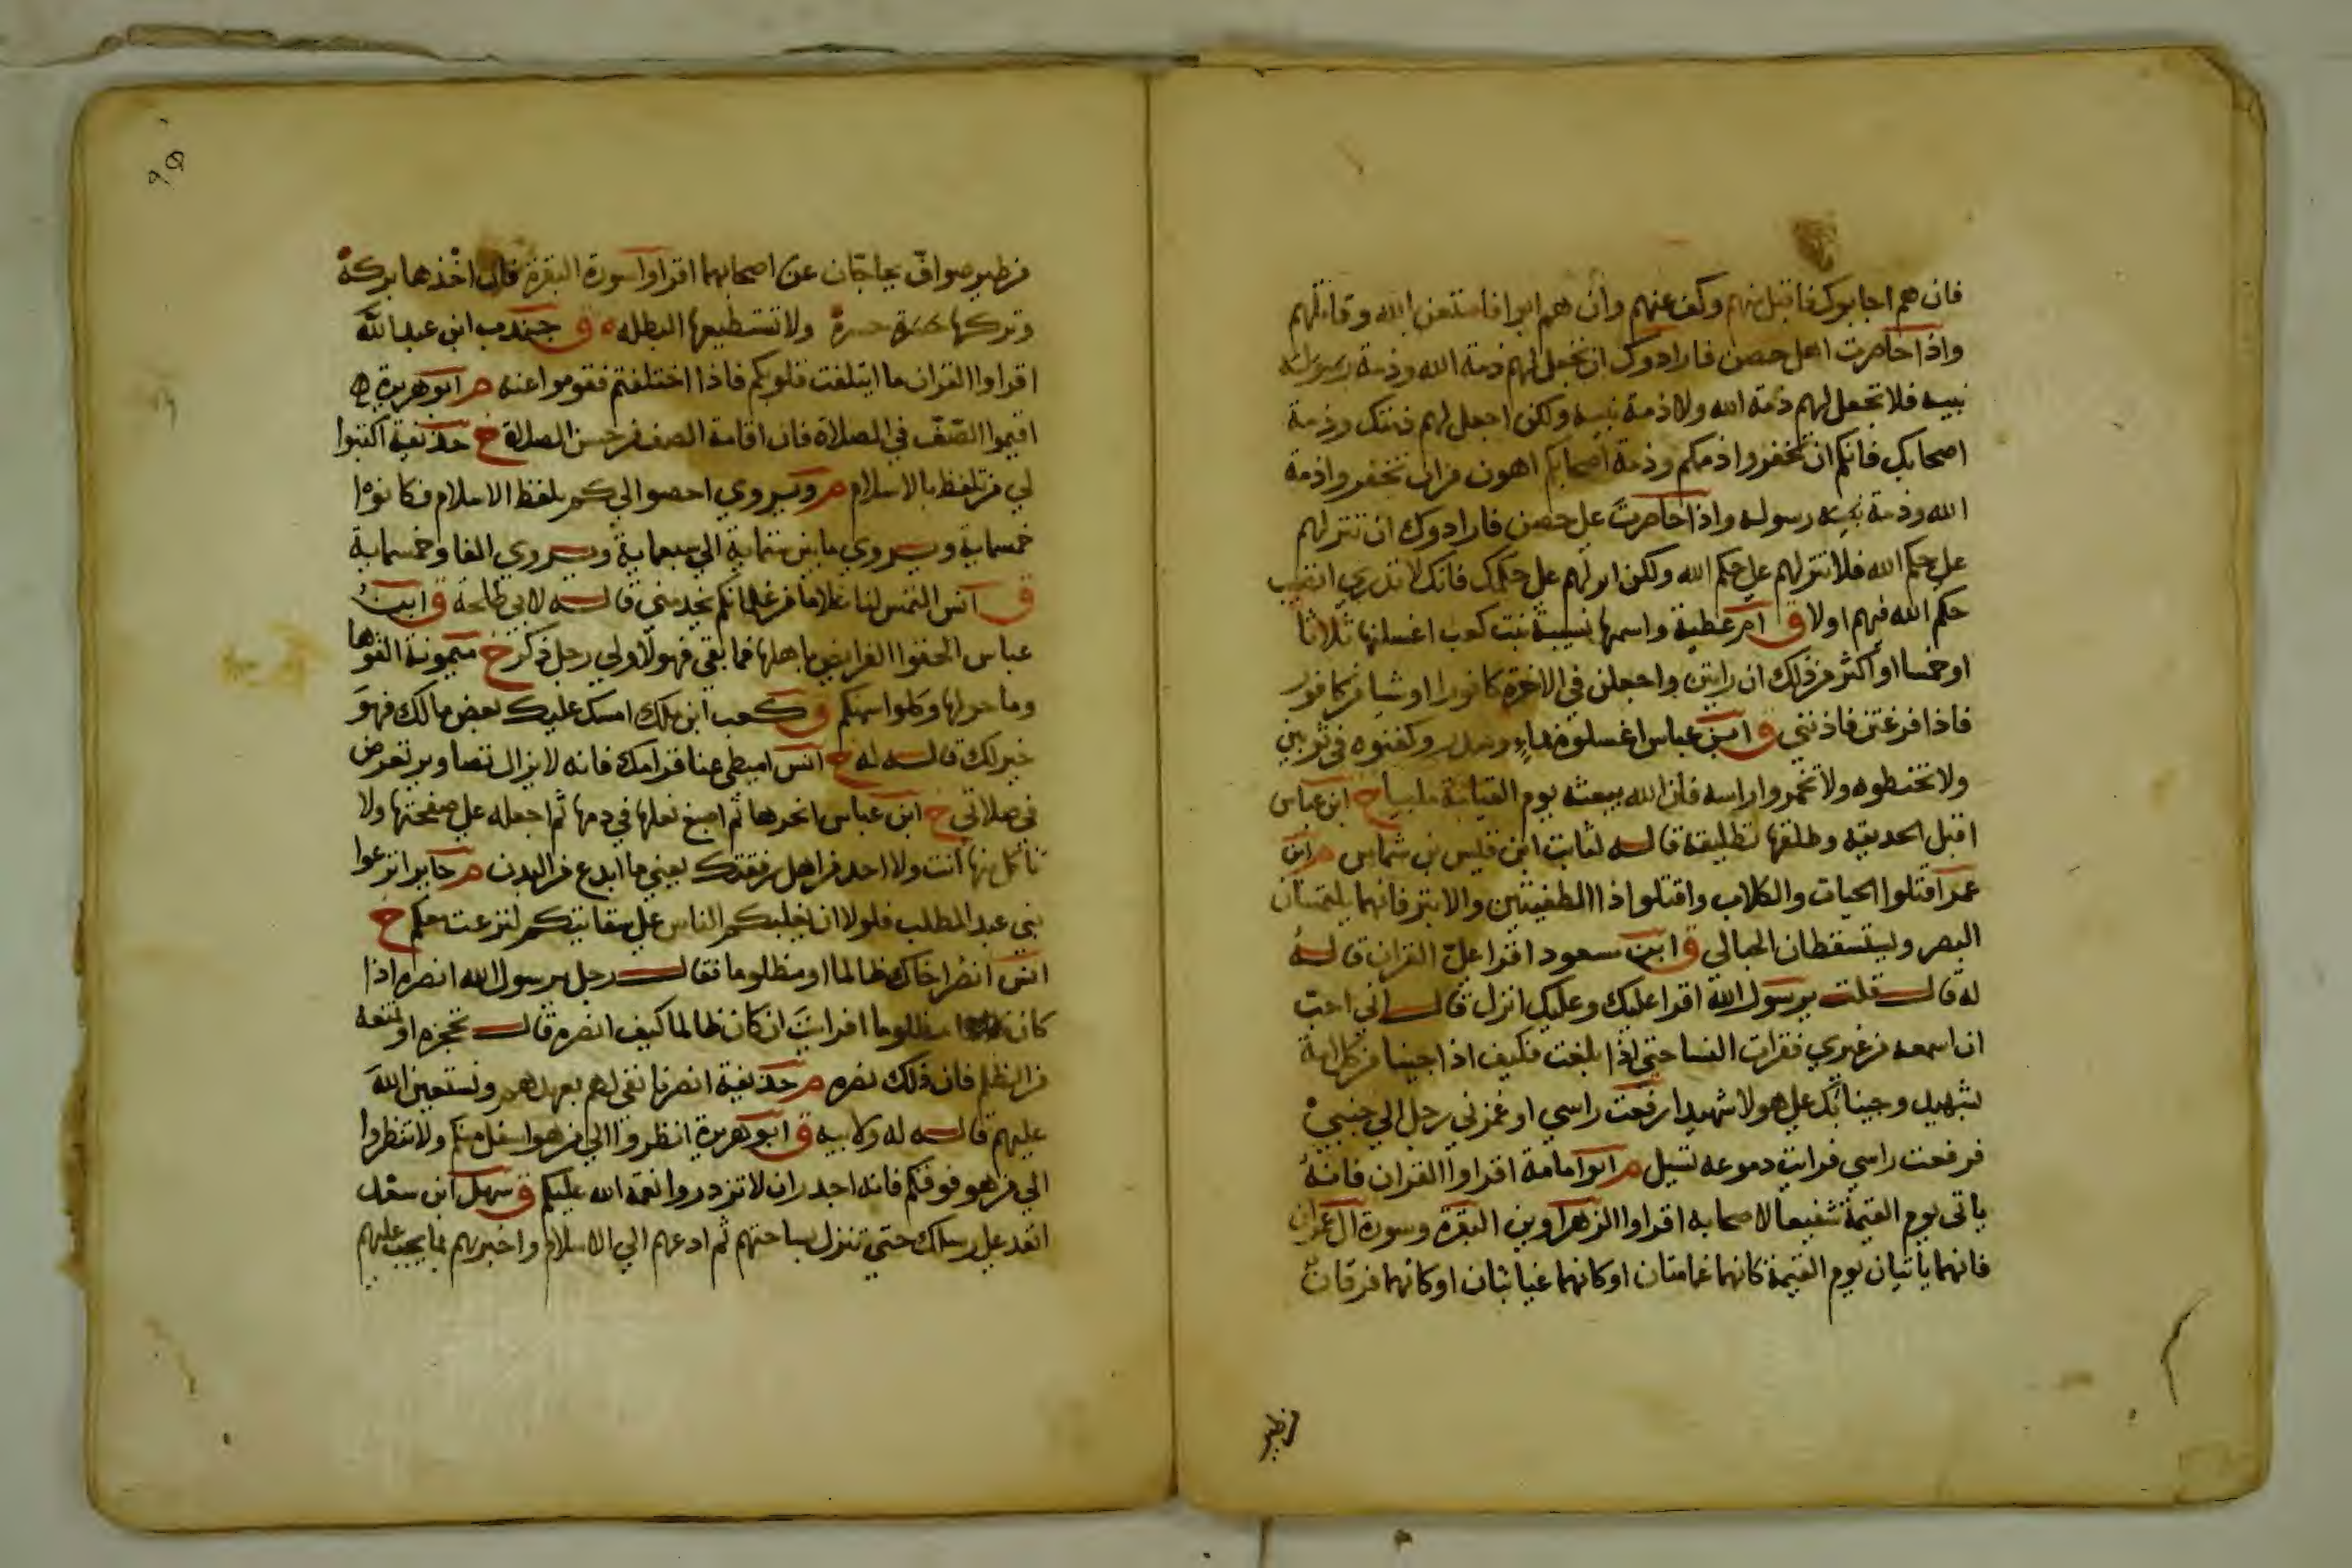 فان هم اجابوك فاقبل منهم وكف عنهم وان هم ابوا فاستعن بالله وقاتلهم
واذا حاصرت اهل حصن فارادوك ان تجعل لهم ذمة الله وذمة رسوله
نبيه فلا تجعل لهم ذمة الله ولا ذمة نبيه ولكن اجعل لهم ذمتك وذمة
اصحابك فانكم ان تخفروا ذممكم وذمة اصحابكم اهون من ان تخفروا ذمة
الله وذمة نبيه رسوله واذا حاصرت على حصن فارادوك ان تنزلهم
على حكم الله فلا تنزلهم على حكم الله ولكن انزلهم على حكمك فانك لا تدري اتصيب
حكم الله فيهم او لا ق ام عطية واسمها نسيبة بنت كعب اغسلنها ثلاثا
او خمسا او اكثر من ذلك ان رايتن واجعلن في الاخرة كافورا او شيا من كافور
فاذا فرغتن فاذنني ق ابن عباس اغسلوه بماء وسدر وكفنوه في ثوبين
ولا تحنطوه ولا تخمروا راسه فان الله يبعثه يوم القيامة ملبيا خ ابن عباس
اقبل الحديقة وطلقها تطليقة قاله لثابت ابن قيس بن شماس م ابن
عمر اقتلوا الحيات والكلاب واقتلوا ذا الطفيتين والابتر فانهما يلتمسان
البصر ويستسقطان الحبالى ق ابن مسعود اقرا علي القران قاله
له قال قلت يرسول الله اقرا عليك وعليك انزل قال اني احب
ان اسمعه من غيري فقرات النسا حتى اذا بلغت فكيف اذا جينا من كل امة
بشهيد وجينا بك على هولا شهيدا رفعت راسي او غمزني رجل الي جنبي
فرفعت راسي فرايت دموعه تسيل م ابو امامة اقراوا القران فانه
ياتي يوم القيمة شفيعا لاصحابه اقراوا الزهراوين البقرة وسورة ال عمران
فانهما ياتيان يوم القيمة كانهما غمامتان او كانهما غيايتان او كانهما فرقان
من طير
من طير صواف يحاجان عن اصحابهما اقراوا سورة البقرة فان اخذها بركة
وتركها حسرة ولا تستطيعها البطله ق جندب ابن عبد الله
اقراوا القران ما ايتلفت قلوبكم فاذا اختلفتم فقوموا عنه م ابو هريرة
اقيموا الصف في الصلاة فان اقامة الصف من حسن الصلاة خ حذيفة اكتبوا
لي من تلفظ بالاسلام م ويروي احصوا لي كم يلفظ الاسلام فكانوا
خمسماية ويروي ما بين ستماية الي سبعماية ويروي الفا وخمسماية
ق انس التمس لنا غلاما من غلمانكم يخدمني قاله لابي طلحة ق ابن
عباس الحقوا الفرايض باهلها فما بقي فهو لاولي رجل ذكر خ ميمونة القوها
وما حولها وكلوا سمنكم ق كعب ابن ملك امسك عليك بعض مالك فهو
خير لك قاله له خ انس اميطي عنا قرامك فانه لا يزال تصاوير تعرض
في صلاتي خ ابن عباس انحرها ثم اصبغ نعلها في دمها ثم اجعله على صفحتها ولا
تاكل منها انت ولا احد من اهل رفقتك يعني ما ابدع من البدن م جابر انزعوا
بني عبد المطلب فلولا ان يغلبكم الناس على سقايتكم لنزعت معكم خ
انس انصر اخاك ظالما او مظلوما فقال رجل يرسول الله انصره اذا
كان مظلوما افرايت ان كان ظالما كيف انصره قال تحجزه او تمنعه
من الظلم فان ذلك نصره م حذيفة انصرفا نفي لهم بعهدهم ونستعين الله
عليهم قاله له ولابيه ق ابو هريرة انظروا الي من هو اسفل منكم ولا تنظروا
الي من هو فوقكم فانه اجدر ان لا تزدروا نعمة الله عليكم ق سهل ابن سعد
انفذ على رسلك حتى تنزل بساحتهم ثم ادعهم الي الاسلام واخبرهم بما يجب عليهم